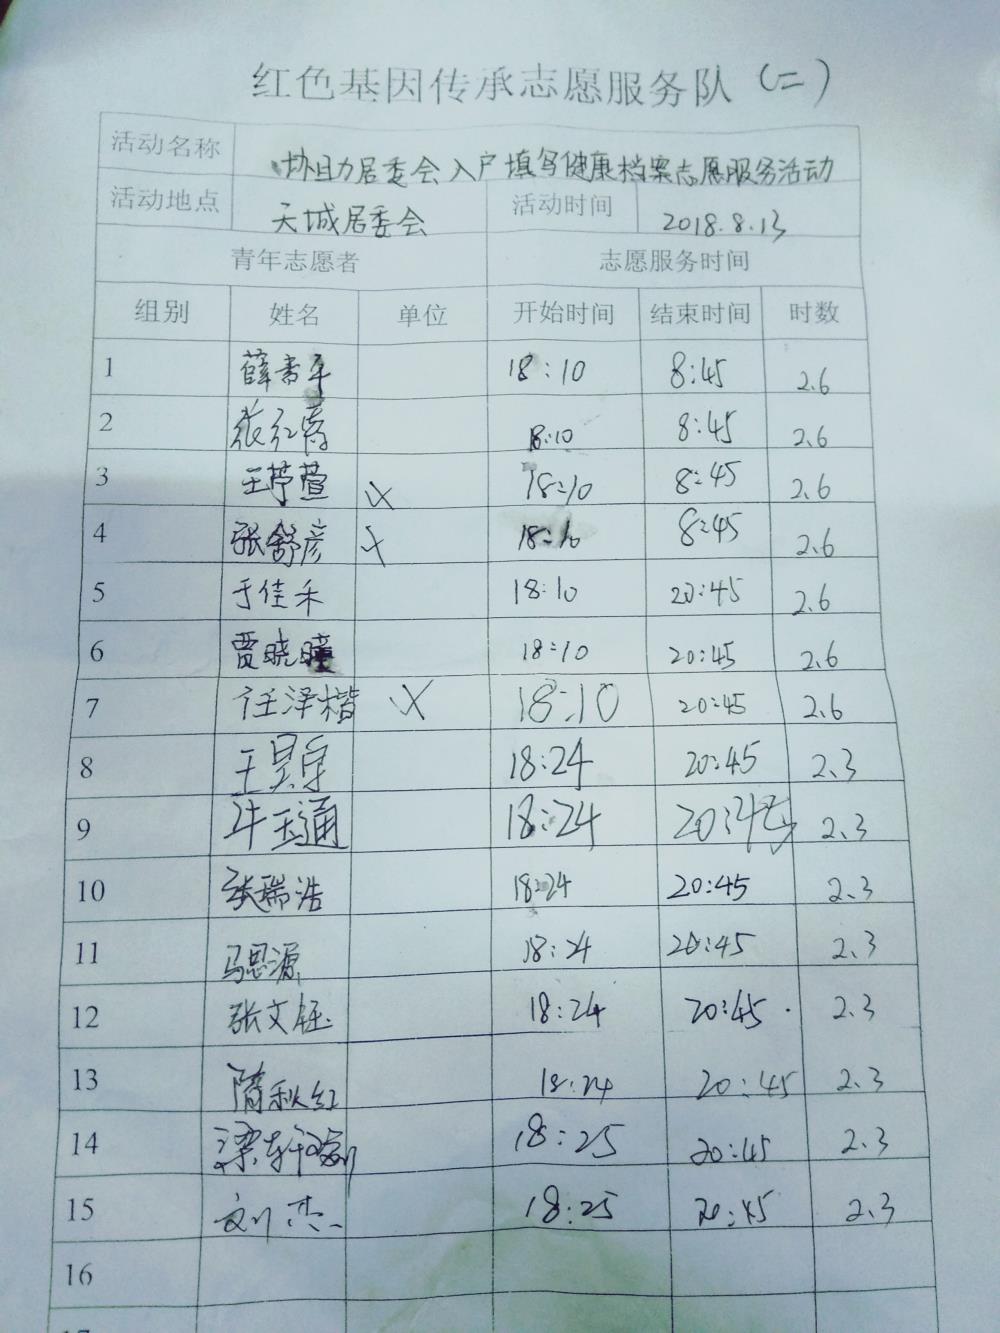 红色基因传承志愿服务队（二）
活动名称 协助居委会入户填写健康档案志愿服务活动
活动地点 天城居委会 活动时间 2018.8.13
青年志愿者 志愿服务时间
组别 姓名 单位 开始时间 结束时间 时数
1 薛香平 18:10 8:45 2.6
2 张红 18:10 8:45 2.6
3 王苧萱 X 18:10 8:45 2.6
4 张舒彦 X 18:10 8:45 2.6
5 于佳禾 18:10 20:45 2.6
6 贾晓瞳 18:10 20:45 2.6
7 任泽楷 X 18:10 20:45 2.6
8 王昊 18:24 20:45 2.3
9 牛玉通 18:24 20:45 2.3
10 张瑞浩 18:24 20:45 2.3
11 马思源 18:24 20:45 2.3
12 张文钰 18:24 20:45 2.3
13 隋秋红 18:24 20:45 2.3
14 梁轩 18:25 20:45 2.3
15 刘杰 18:25 20:45 2.3
16